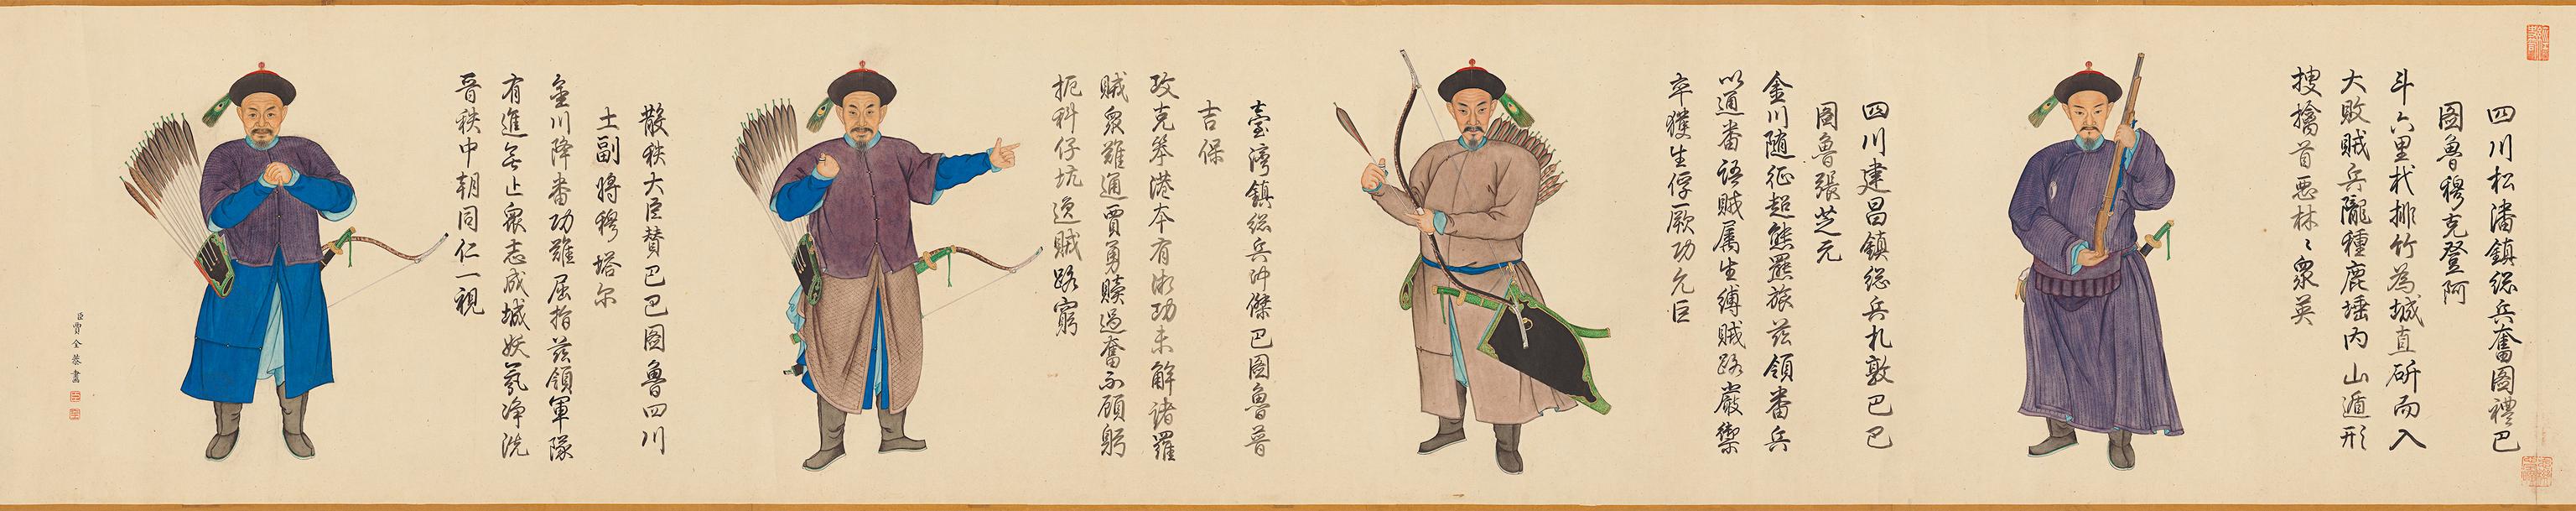 四川松潘鎮總兵奮圖禮巴
圖魯穆克登阿
斗六里杙排竹為城直斫而入
大敗賊兵隴種鹿埵內山遁形
搜擒首惡林〻衆英
四川建昌鎮總兵扎敦巴巴
圖魯張芝元
金川隨征超熊羆旅茲領番兵
以通番語賊屬生縛賊路嚴禦
卒獲生俘厥功允巨
臺灣鎮總兵沖傑巴圖魯普
吉保
攻克笨港本有微功未解諸羅
賊衆難通賈勇贖過奮不顧躬
扼科仔坑逸賊路窮
散秩大臣贊巴巴圖魯四川
土副將穆塔尔
金川降番功難屈指茲領軍隊
有進無止衆志成城妖氛淨洗
晉秩中朝同仁一視
臣賈全恭畫